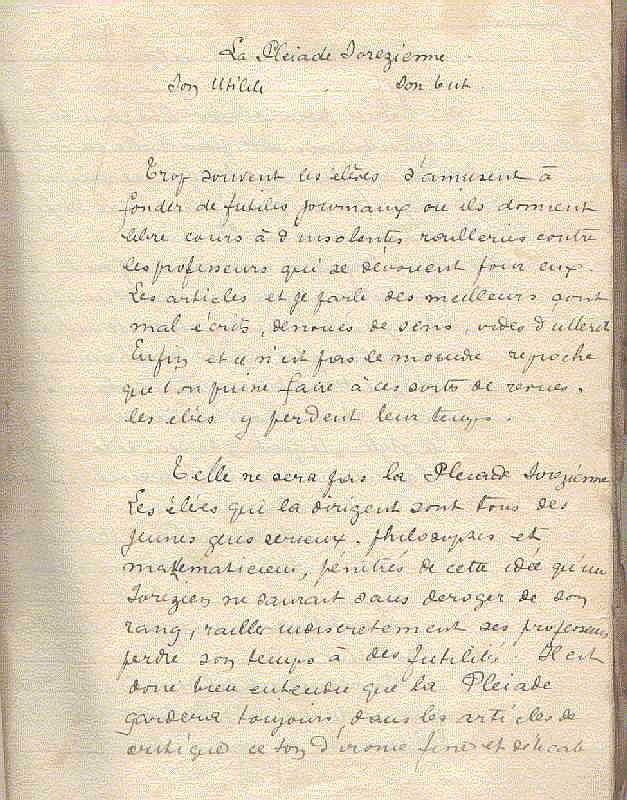 La Pleiade Sorezienne
Son Utilité Son but
Trop souvent les élèves s'amusent à
fonder de futiles journaux ou ils donnent
libre cours à d'insolentes railleries contre
les professeurs qui se dévouent pour eux.
Les articles et je parle des meilleurs sont
mal écrits, dénoués de sens, vides d'intéret
Enfin et ce n'est pas le moindre reproche
que l'on puisse faire à ces sortes de revues,
les élèves y perdent leur temps.
Telle ne sera pas la Pleiade Sorezienne
Les élèves qui la dirigent sont tous des
jeunes gens serieux, philosophes et
mathematiciens, pénétrés de cette idée qu'un
Sorezien ne saurait sans deroger de son
rang, railler indiscretement ses professeurs
perdre son temps à des futilités Il est
donc bien entendu que la Pleiade
gardera toujours, dans les articles de
critique ce ton d'ironie fine et délicate